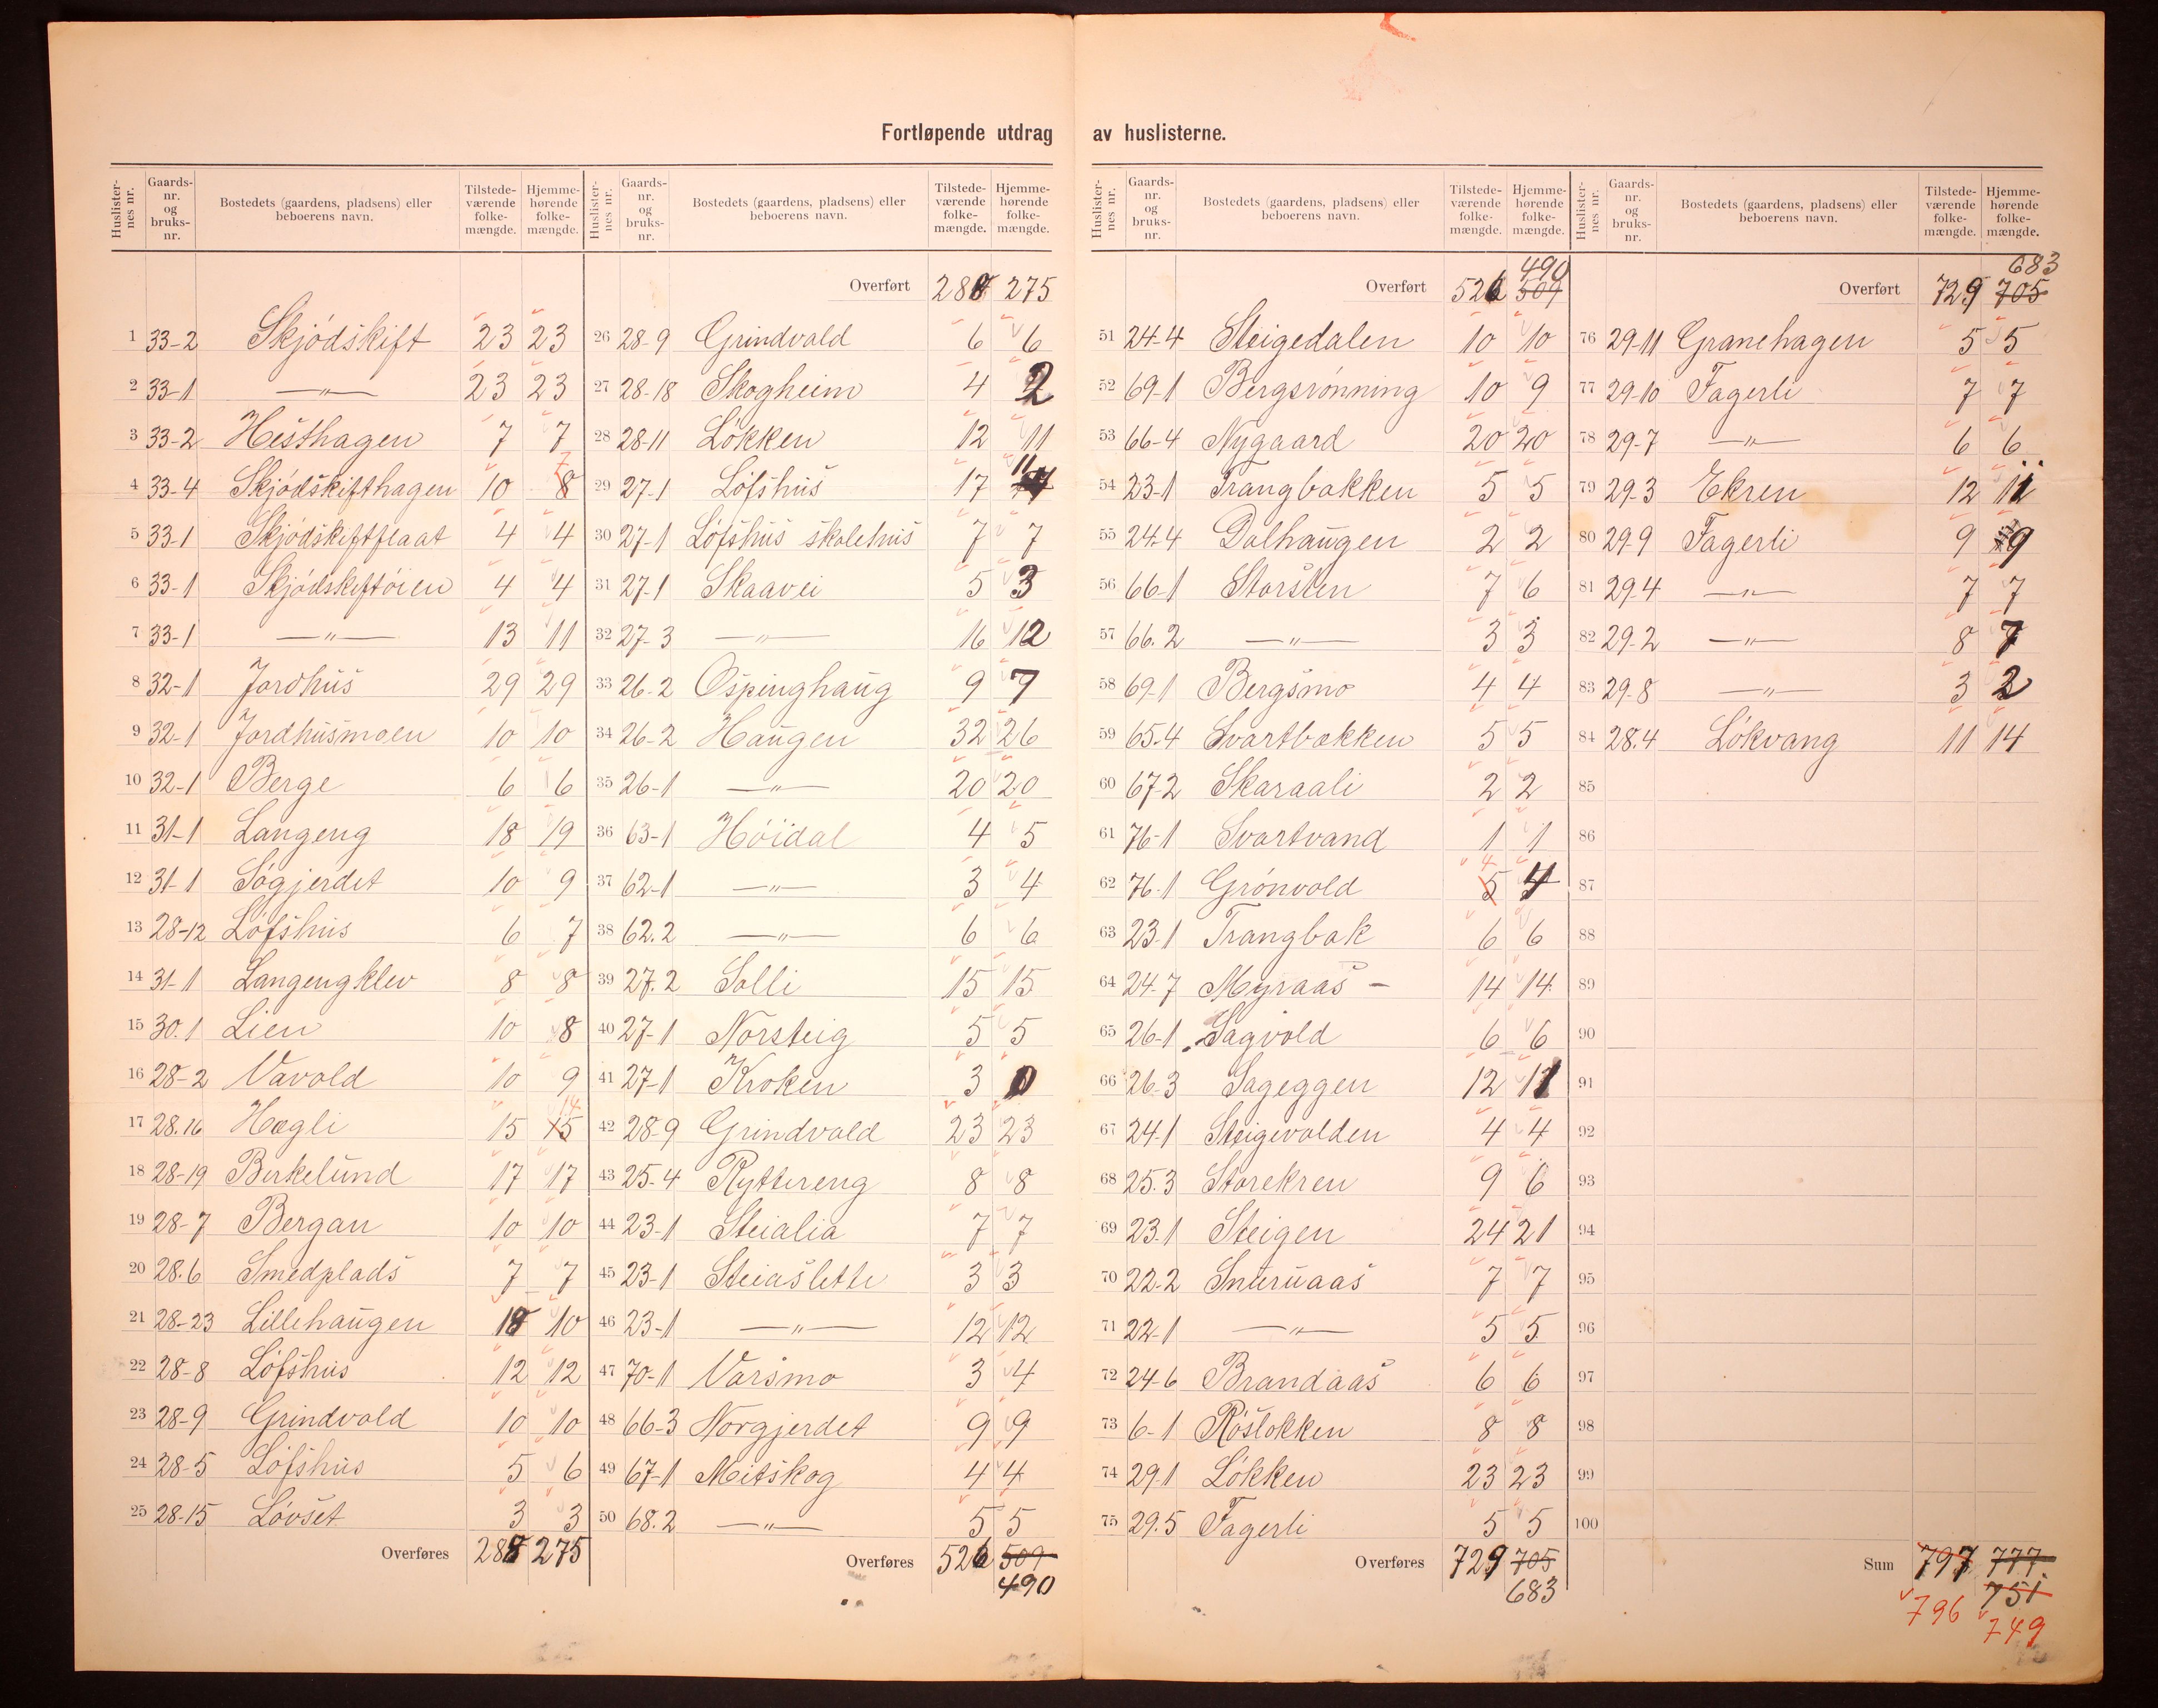 Fortløpende utdrag av huslisterne.
Huslisternes nr. Gaards-nr. og bruks-nr. Bostedets (gaardens, pladsens) eller beboerens navn. Tilstedeværende folkemængde. Hjemmehørende folkemængde.
1 33-2 Skjødskift 23 23
2 33-1 —"— 23 23
3 33-2 Hesthagen 7 7
4 33-4 Skjødskifthagen 10 8 7
5 33-1 Skjødskiftflaat 4 4
6 33-1 Skjødskiftøien 4 4
7 33-1 —"— 13 11
8 32-1 Jordhus 29 29
9 32-1 Jordhusmoen 10 10
10 32-1 Berge 6 6
11 31-1 Langeng 18 19
12 31-1 Søgjerdet 10 9
13 28-12 Løfshus 6 7
14 31-1 Langengklev 8 8
15 30.1 Lien 10 8
16 28-2 Vavold 10 9
17 28.16 Hægli 15 15 14
18 28-19 Birkelund 17 17
19 28-7 Bergan 10 10
20 28.6 Smedplads 7 7
21 28-23 Lillehaugen 18 10
22 28-8 Løfshus 12 12
23 28-9 Grindvold 10 10
24 28-5 Løfshus 5 6
25 28-15 Løvset 3 3
Overføres 288 275
Huslisternes nr. Gaards-nr. og bruks-nr. Bostedets (gaardens, pladsens) eller beboerens navn. Tilstedeværende folkemængde. Hjemmehørende folkemængde.
Overført 288 275
26 28-9 Grindvold 6 6
27 28-18 Skogheim 4 2
28 28-11 Løkken 12 11
29 27-1 Løfshus 17 11
30 27-1 Løfshus skolehus 7 7
31 27-1 Skaavei 5 3
32 27-3 —"— 16 12
33 26-2 Ospinghaug 9 7
34 26-2 Haugen 32 26
35 26-1 —"— 20 20
36 63-1 Høidal 4 5
37 62-1 —"— 3 4
38 62.2 —"— 6 6
39 27.2 Solli 15 15
40 27-1 Norsteig 5 5
41 27-1 Kroken 3 0
42 28-9 Grindvold 23 23
43 25-4 Ryttereng 8 8
44 23-1 Steialia 7 7
45 23-1 Steiaslette 3 3
46 23-1 —"— 12 12
47 70-1 Varsmo 3 4
48 66-3 Norgjerdet 9 9
49 67-1 Meitskog 4 4
50 68.2 —"— 5 5
Overføres 526 509
490
Huslisternes nr. Gaards-nr. og bruks-nr. Bostedets (gaardens, pladsens) eller beboerens navn. Tilstedeværende folkemængde. Hjemmehørende folkemængde.
490
Overført 526 509
51 24-4 Steigedalen 10 10
52 69-1 Bergsrønning 10 9
53 66-4 Nygaard 20 20
54 23-1 Trangbakken 5 5
55 24.4 Dalhaugen 2 2
56 66-1 Storsten 7 6
57 66.2 —"— 3 3
58 69-1 Bergsmo 4 4
59 65-4 Svartbakken 5 5
60 67-2 Skaraali 2 2
61 76-1 Svartvand 1 1
62 76-1 Grønvold 5 4 4
63 23-1 Trangbak 6 6
64 24-7 Myraas - 14 14
65 26-1 Sagvold 6 6
66 26-3 Sageggen 12 11
67 24-1 Steigevolden 4 4
68 25.3 Storekren 9 6
69 23.1 Steigen 24 21
70 22-2 Snuruaas 7 7
71 22-1 —"— 5 5
72 24-6 Brandaas 6 6
73 6-1 Røslokken 8 8
74 29-1 Løkken 23 23
75 29.5 Fagerli 5 5
Overføres 729 705
683
Huslisternes nr. Gaards-nr. og bruks-nr. Bostedets (gaardens, pladsens) eller beboerens navn. Tilstedeværende folkemængde. Hjemmehørende folkemængde.
683
Overført 729 705
76 29-11 Granehagen 5 5
77 29-10 Fagerli 7 7
78 29-7 —"— 6 6
79 29-3 Ekren 12 11
80 29-9 Fagerli 9 9
81 29-4 —"— 7 7
82 29-2 —"— 8 7
83 29-8 —"— 3 2
84 28.4 Løkvang 11 14
85
86
87
88
89
90
91
92
93
94
95
96
97
98
99
100
Sum 797 777
751
796 749